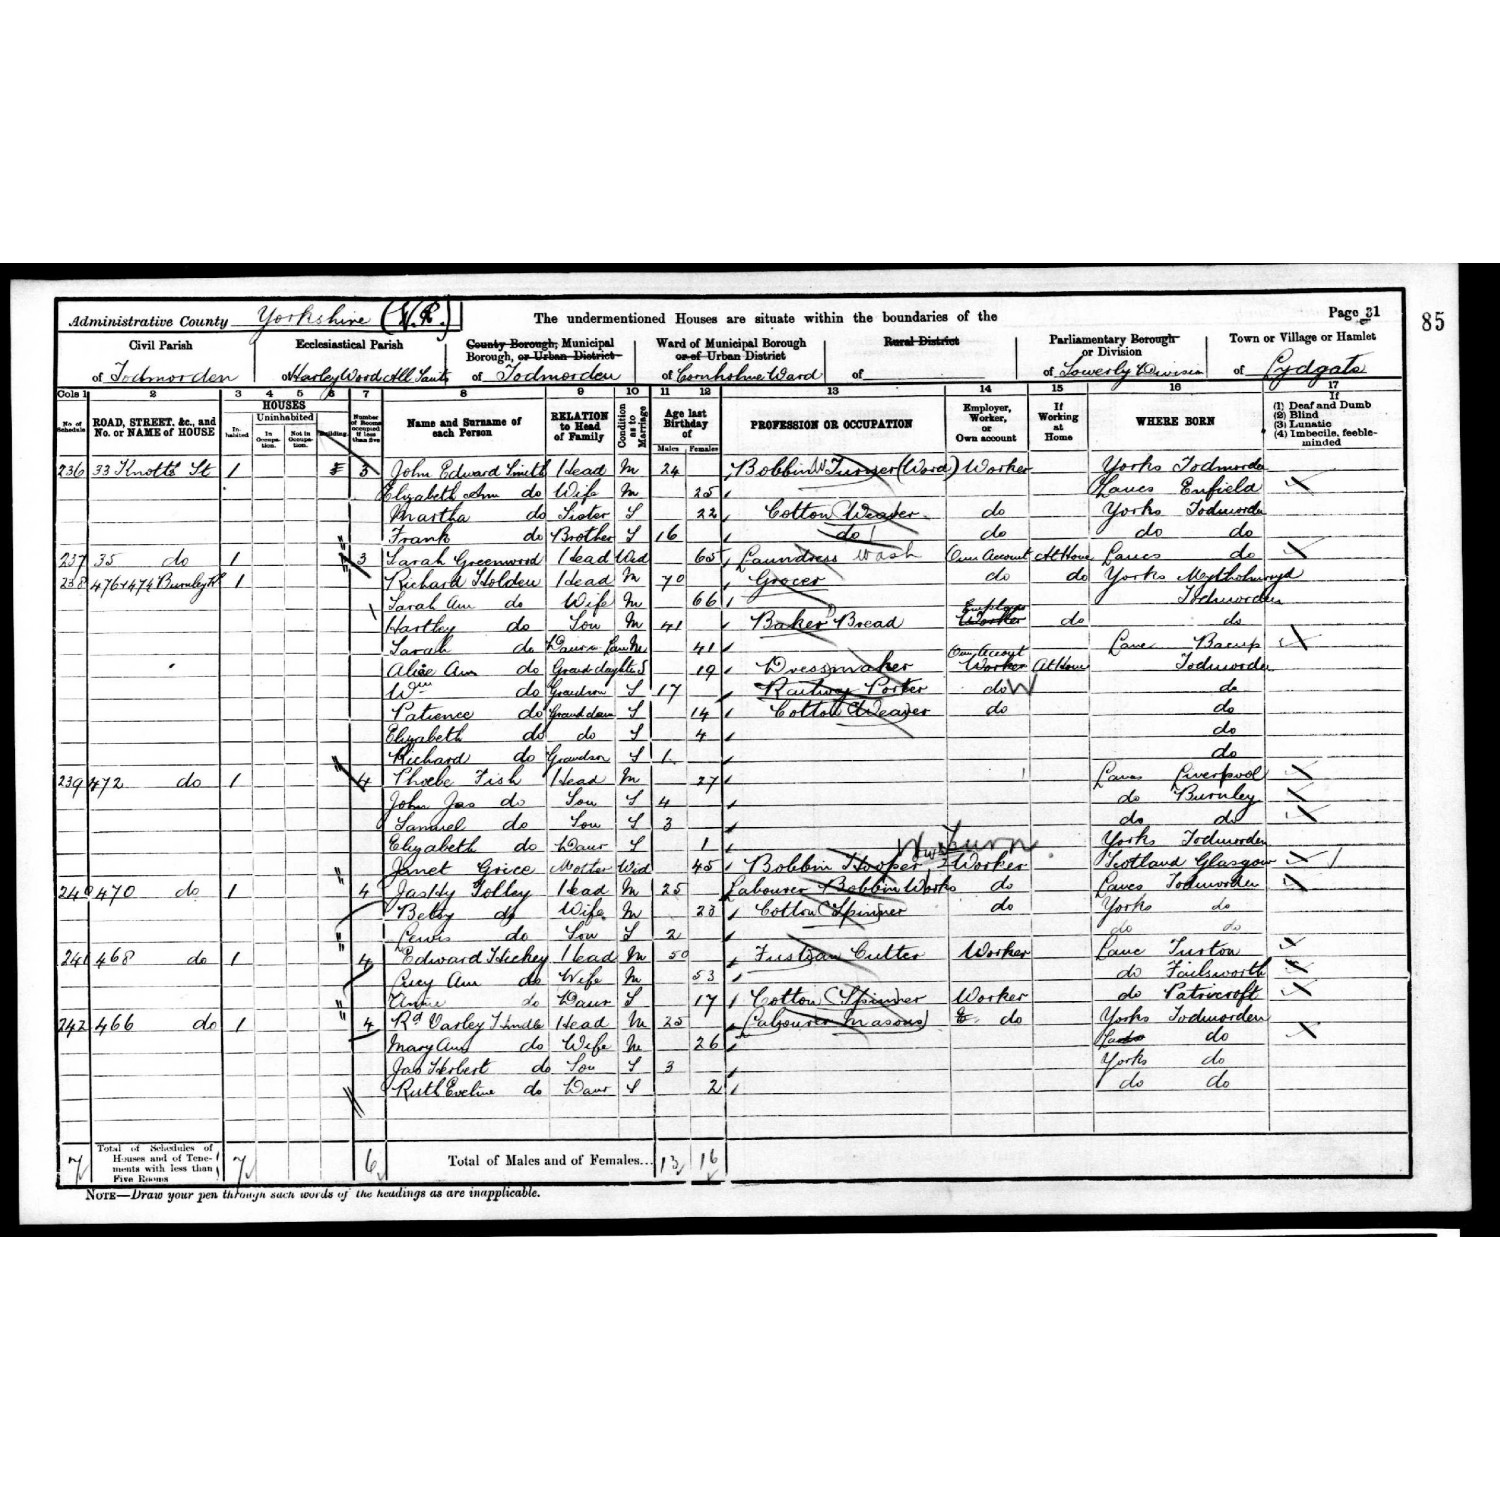 Administrative County Yorkshire (W.R.) The undermentioned Houses are situate within the boundaries of the Page 31
85
Civil Parish Ecclesiastical Parish County Borough, Municipal Borough, or Urban District Ward of Municipal Borough or of Urban District Rural District Parliamentary Borough or Division Town or Village or Hamlet
of Todmorden of Harley Wood All Saints of Todmorden of Cornholme Ward of of Sowerby Division of Lydgate
Cols 1 2 3 4 5 6 7 8 9 10 11 12 13 14 15 16 17
No. of Schedule ROAD, STREET, &c., and No. or NAME of HOUSE HOUSES Inhabited Uninhabited In Occupation. Not in Occupation. Building. Number of Rooms occupied if less than five Name and Surname of each Person RELATION to Head of Family Condition as to Marriage Age last Birthday of Males Females PROFESSION OR OCCUPATION Employer, Worker, or Own account If Working at Home WHERE BORN If (1) Deaf and Dumb (2) Blind (3) Lunatic (4) Imbecile, feeble-minded
236 33 Knotts St 1 3 John Edward Smith Head M 24 Bobbin Turner (Wood) Worker Yorks Todmorden
Elizabeth Ann do Wife M 25 Lancs Enfield
Martha do Sister S 22 Cotton Weaver do Yorks Todmorden
Frank do Brother S 16 do do do do
237 35 do 1 3 Sarah Greenwood Head Wid 65 Laundress Wash Own Account At Home Lancs do
238 476+474 Burnley Rd 1 Richard Holden Head M 70 Grocer do do Yorks Mytholmroyd
Sarah Ann do Wife M 66 Todmorden
Hartley do Son M 41 Baker Bread Worker Employer do do
Sarah do Daur in Law M 41 Lanc Bacup
Alice Ann do Granddaughter S 19 Dressmaker Worker Own Account At Home Todmorden
Wm do Grandson S 17 Railway Porter do W do
Patience do Grand daur S 14 Cotton Weaver do do
Elizabeth do do S 4 do
Richard do Grandson S 1 do
239 472 do 1 4 Phoebe Fish Head M 27 Lancs Liverpool
John Jas do Son S 4 do Burnley
Samuel do Son S 3 do do
Elizabeth do Daur S 1 Yorks Todmorden
Janet Grice Mother Wid 45 Bobbin Hooper Wood Turn Worker Scotland Glasgow
240 470 do 1 4 Jas Hy Tolley Head M 25 Labourer Bobbin Works do Lancs Todmorden
Betsy do Wife M 23 Cotton Spinner do Yorks do
Lewis do Son S 2 do do
241 468 do 1 4 Edward Hickey Head M 50 Fustian Cutter Worker Lanc Turton
Lucy Ann do Wife M 53 do Failsworth
Annie do Daur S 17 Cotton Spinner Worker do Patricroft
242 466 do 1 4 Rd Varley Hindle Head M 25 Labourer Masons do Yorks Todmorden
Mary Ann do Wife M 26 do
Jas Herbert do Son S 3 Yorks do
Ruth Eveline do Daur S 2 do do
7 Total of Schedules of Houses and of Tenements with less than Five Rooms 7 6 Total of Males and of Females... 13 16
NOTE—Draw your pen through such words of the headings as are inapplicable.